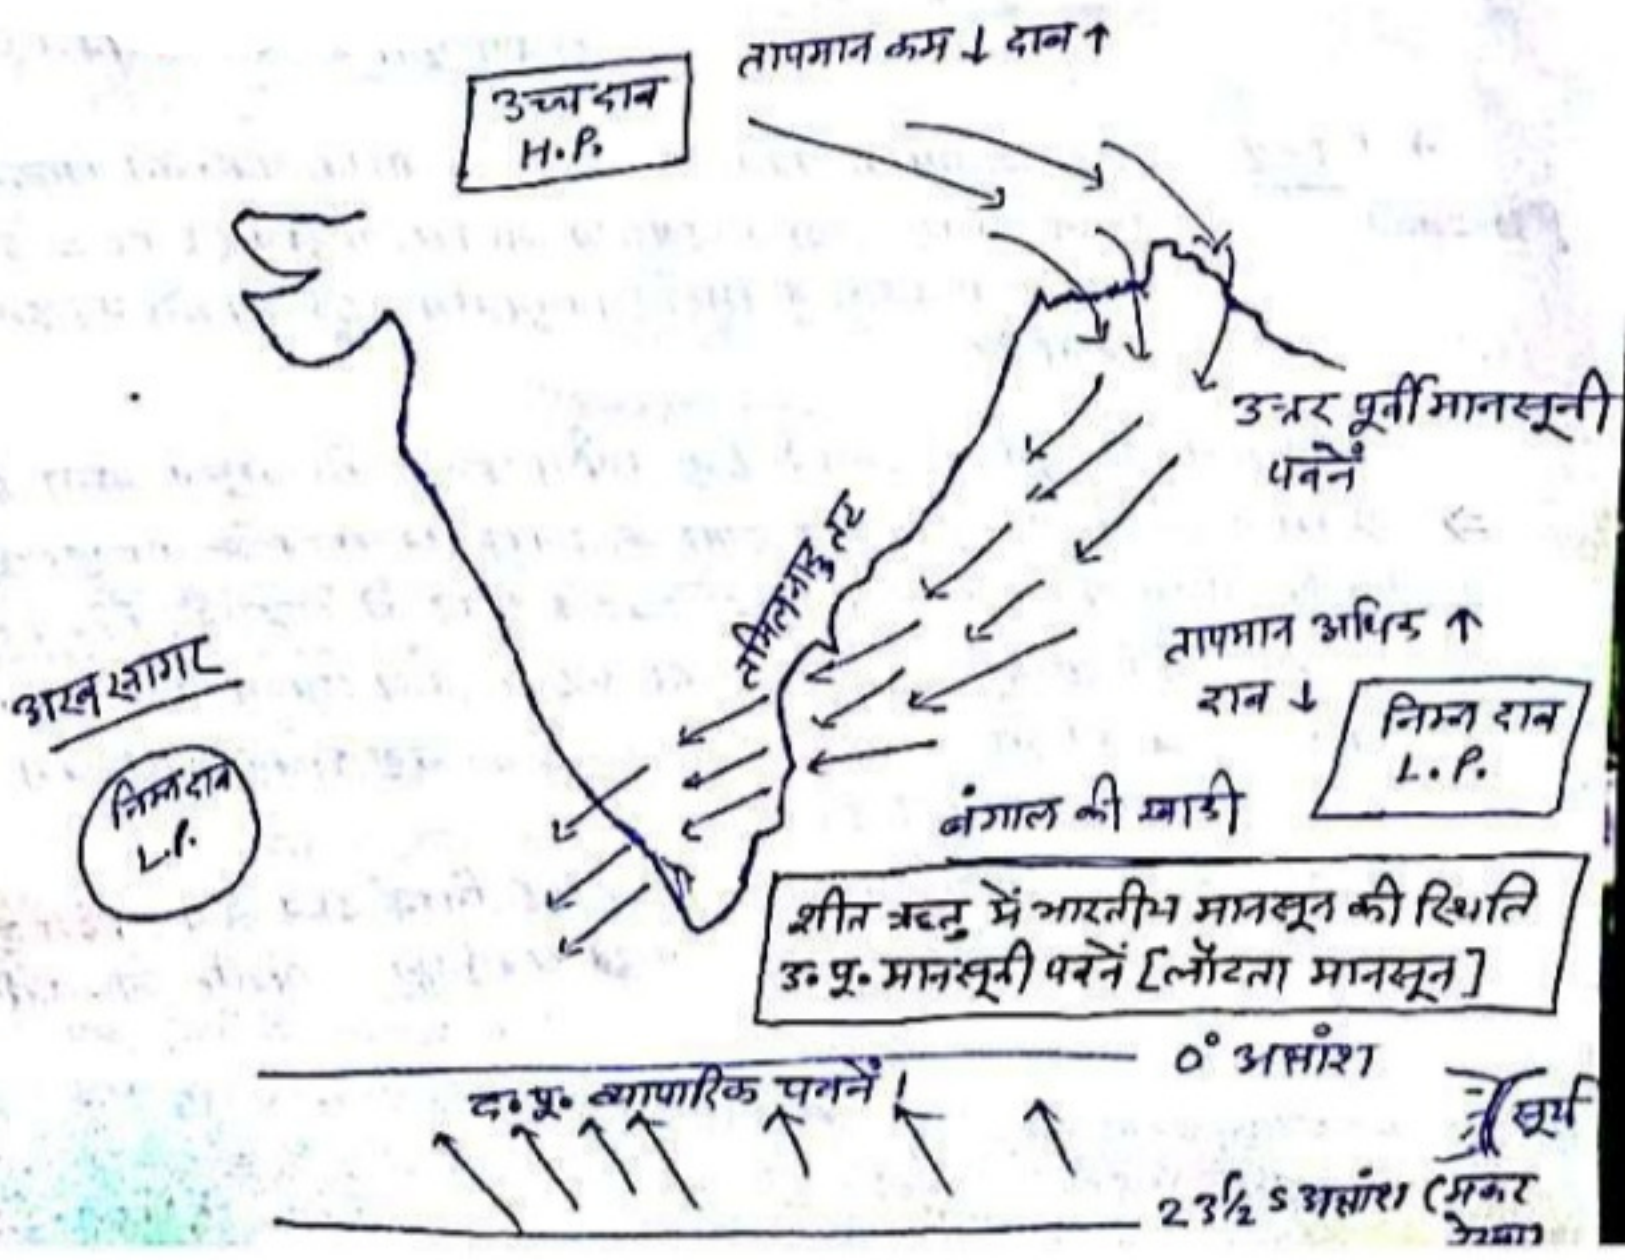 तापमान कम ↓ दाब ↑
उच्च दाब
H.P.
उत्तर पूर्वी मानसूनी
पवनें
तमिलनाडु तट
तापमान अधिक ↑
दाब ↓
निम्न दाब
L.P.
अरब सागर
निम्न दाब
L.P.
बंगाल की खाडी
शीत ऋतु में भारतीय मानसून की स्थिति
उ॰ पू॰ मानसूनी पवनें [लौटता मानसून]
0° अक्षांश
द॰ पू॰ व्यापारिक पवनें।
सूर्य
23½ S अक्षांश (मकर
रेखा)